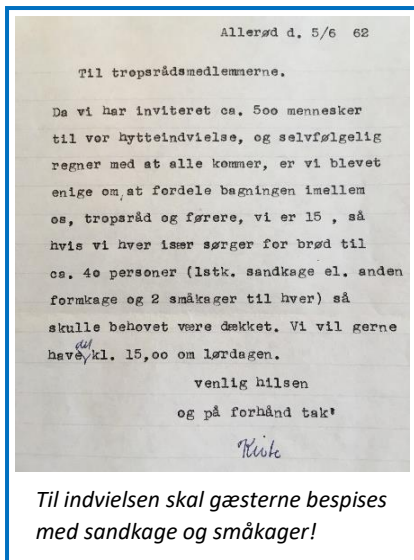 Allerød d. 5/6 62
Til tropsrådsmedlemmerne.
Da vi har inviteret ca. 500 mennesker
til vor hytteindvielse, og selvfølgelig
regner med at alle kommer, er vi blevet
enige om at fordele bagningen imellem
os, tropsråd og førere, vi er 15 , så
hvis vi hver især sørger for brød til
ca. 40 personer (1stk. sandkage el. anden
formkage og 2 småkager til hver) så
skulle behovet være dækket. Vi vil gerne
have kl. 15,00 om lørdagen.
venlig hilsen
og på forhånd tak'
Til indvielsen skal gæsterne bespises
med sandkage og småkager!